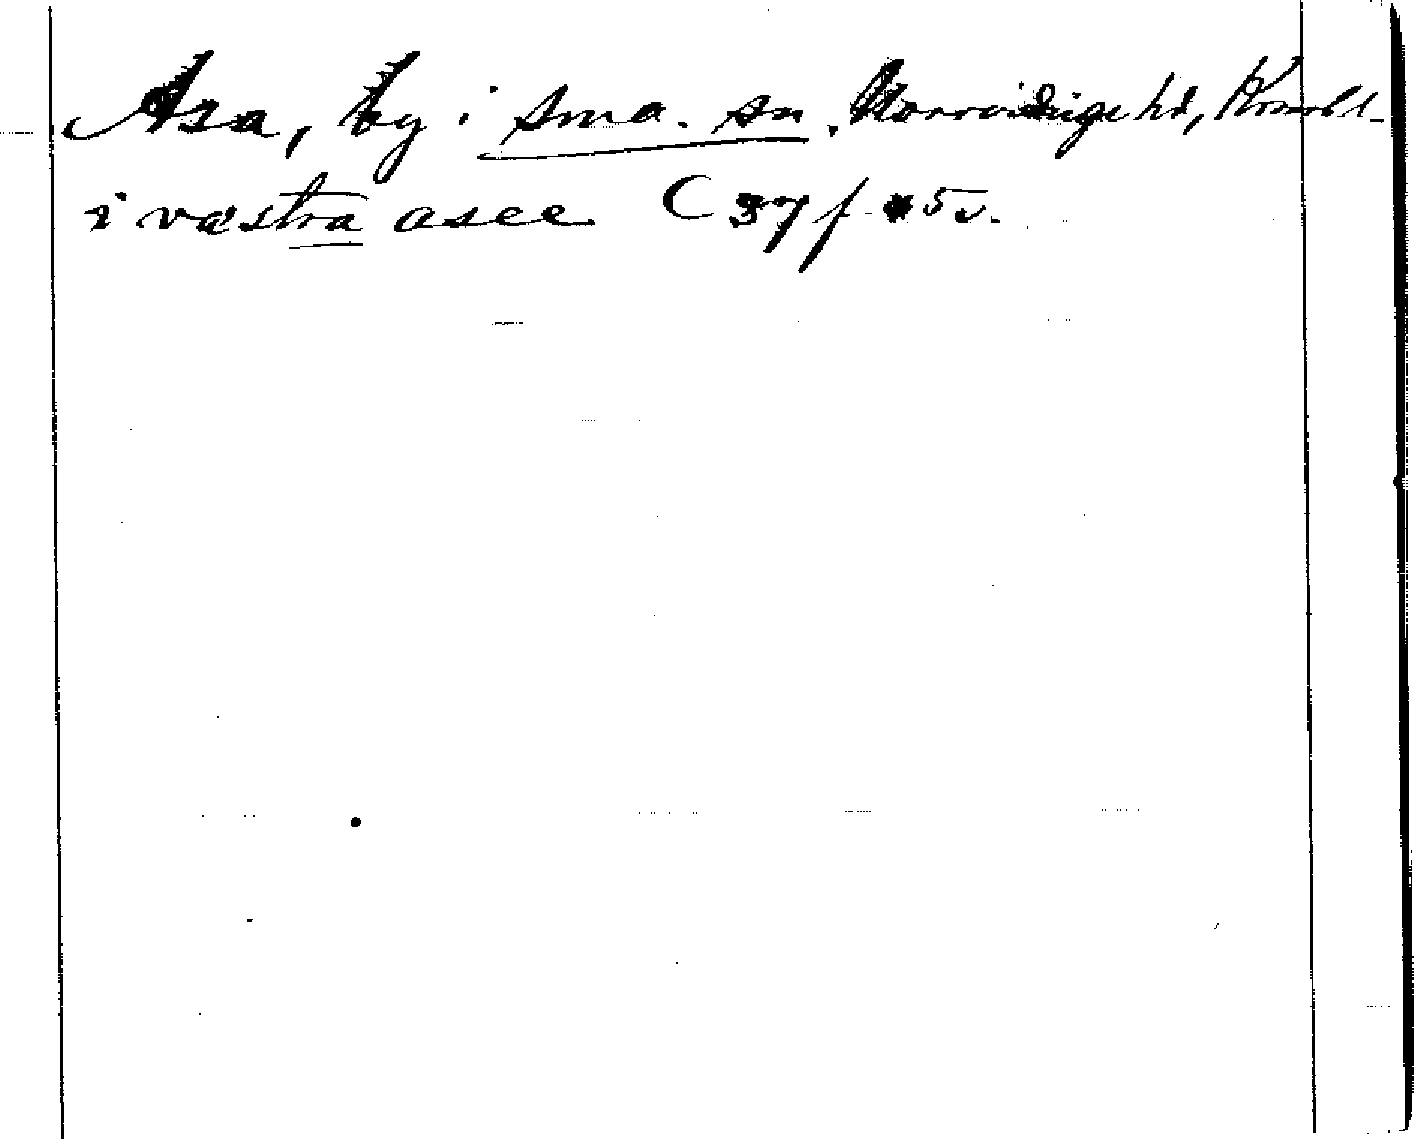 Asa, by i sma. sn. Norrvidinge hd, Kronobl.
i væstra asee C 37 f. 5 v.